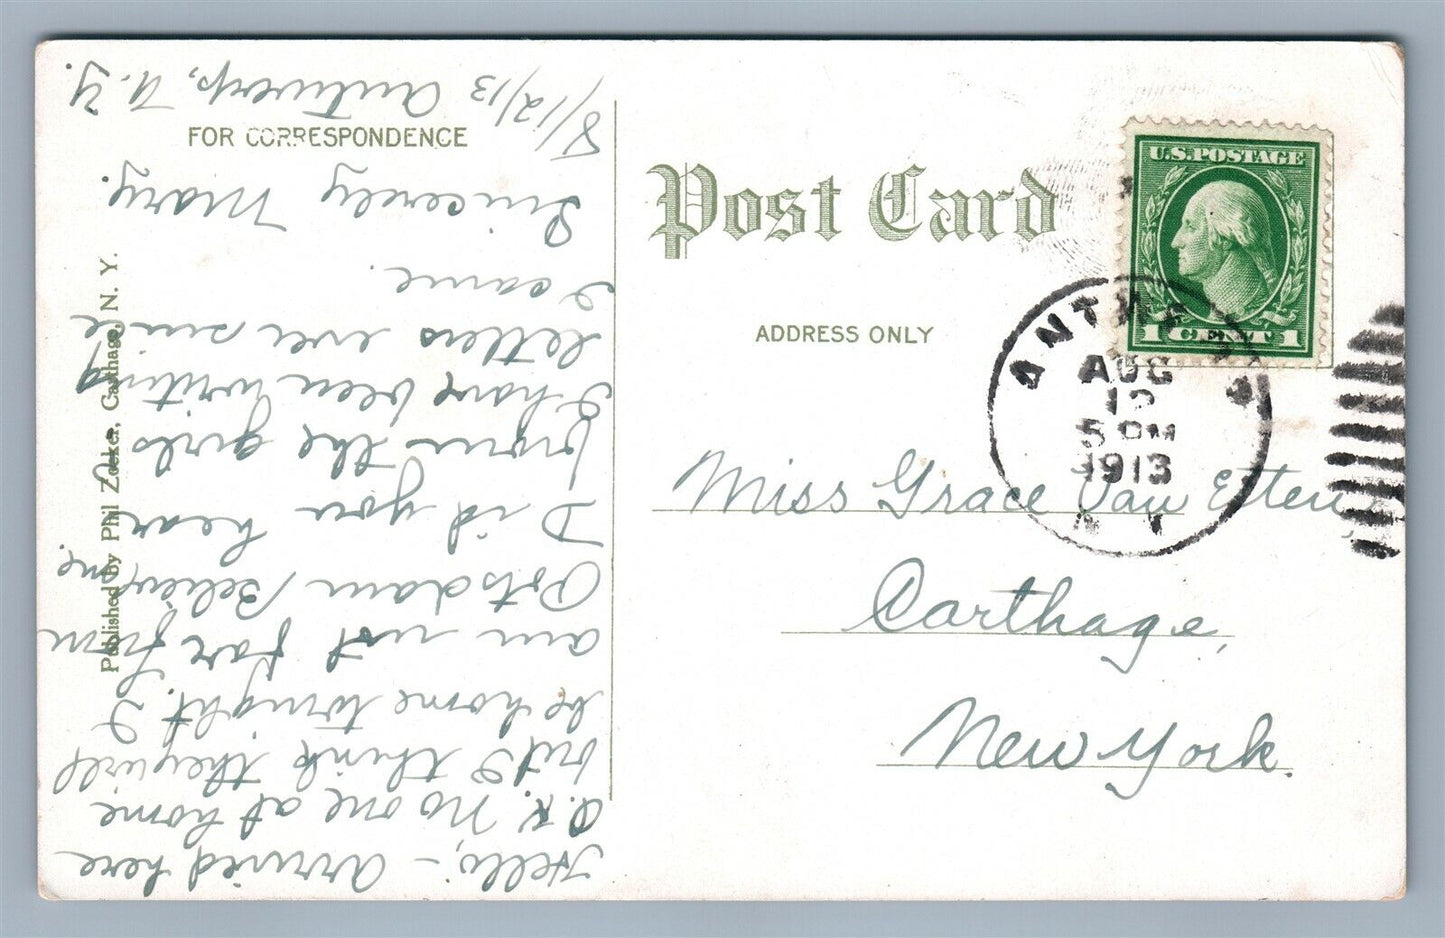 FOR CORRESPONDENCE
Post Card
ADDRESS ONLY
U.S.POSTAGE
1 CENT 1
AUG
12
5 PM
1913
N Y
Miss Grace Van Etten,
Carthage,
New York.
Published by Phil Zecker, Carthage, N. Y.
Hello, - arrived here
O.K. No one at home
but I think they will
be home tonight. I
am not far from
Potsdam Believe me.
Did you hear
from the girls
I have been writing
letters ever since
I came.
Sincerely Mary.
8/12/13 Antwerp, N.Y.